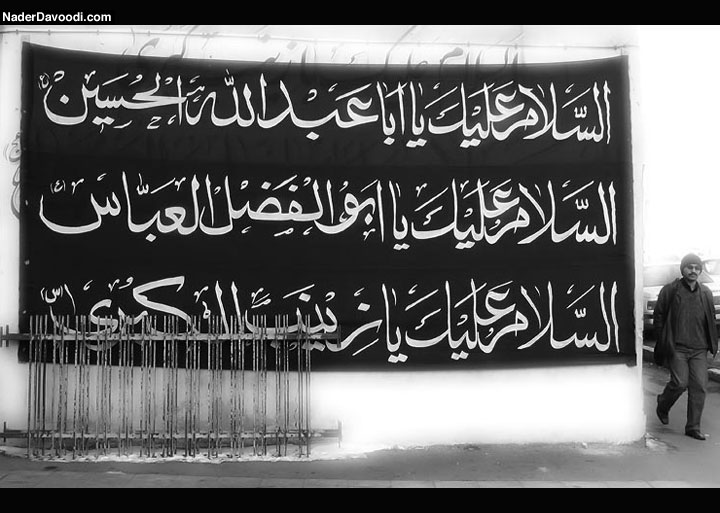 NaderDavoodi.com
السلام علیک یا ابا عبد الله الحسین (ع)
السلام علیک یا ابو الفضل العباس (ع)
السلام علیک یا زینب الکبری (س)